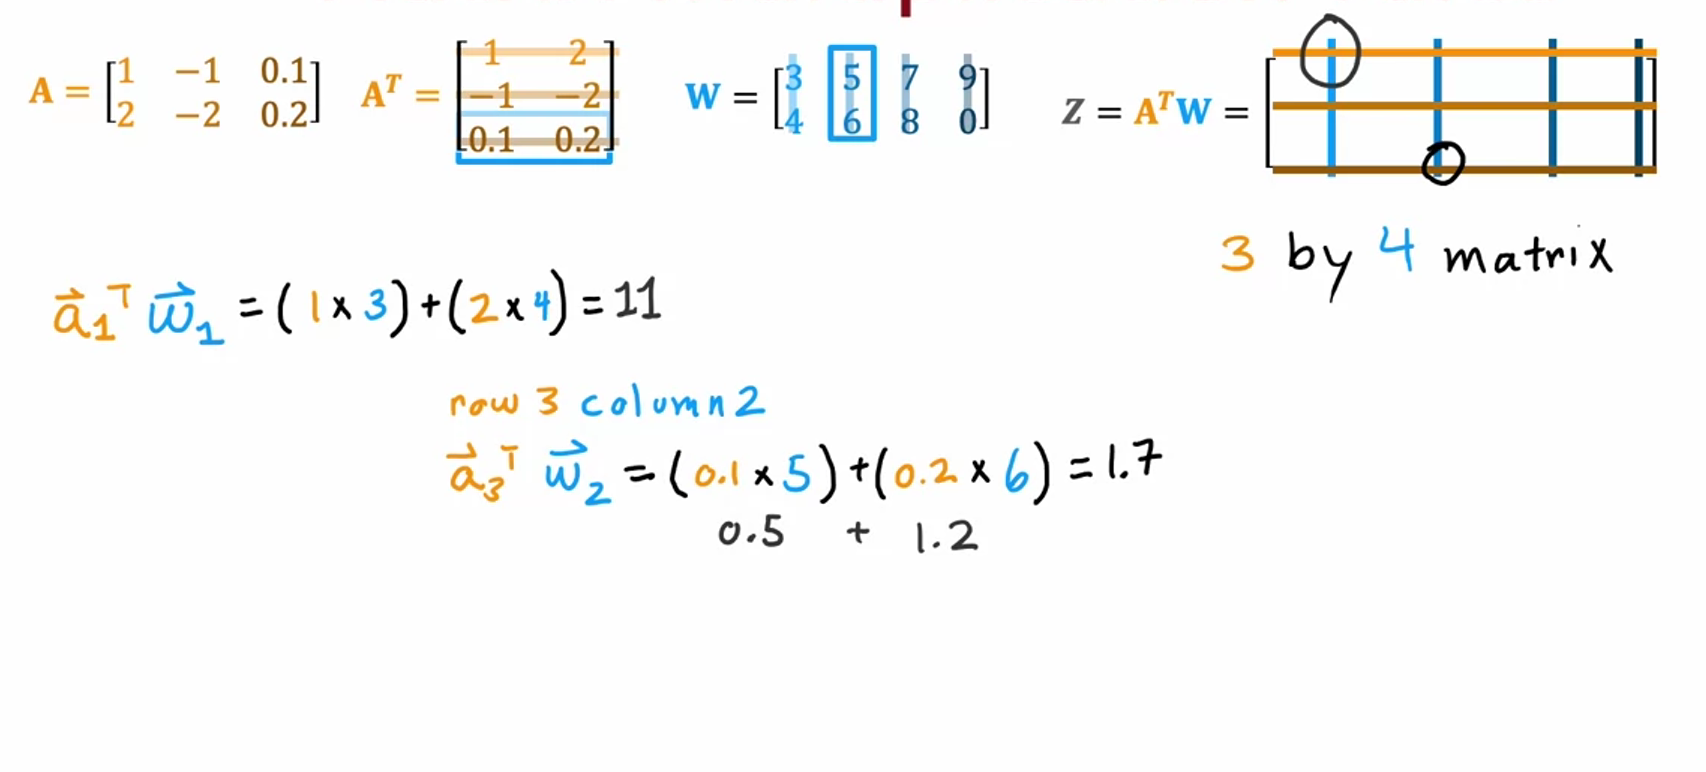 A = [1 −1 0.1
2 −2 0.2]
Aᵀ = [1 2
−1 −2
0.1 0.2]
W = [3 5 7 9
4 6 8 0]
Z = AᵀW = [ ]
3 by 4 matrix
a⃗₁ᵀ w⃗₁ = (1 × 3) + (2 × 4) = 11
row 3 column 2
a⃗₃ᵀ w⃗₂ = (0.1 × 5) + (0.2 × 6) = 1.7
0.5 + 1.2